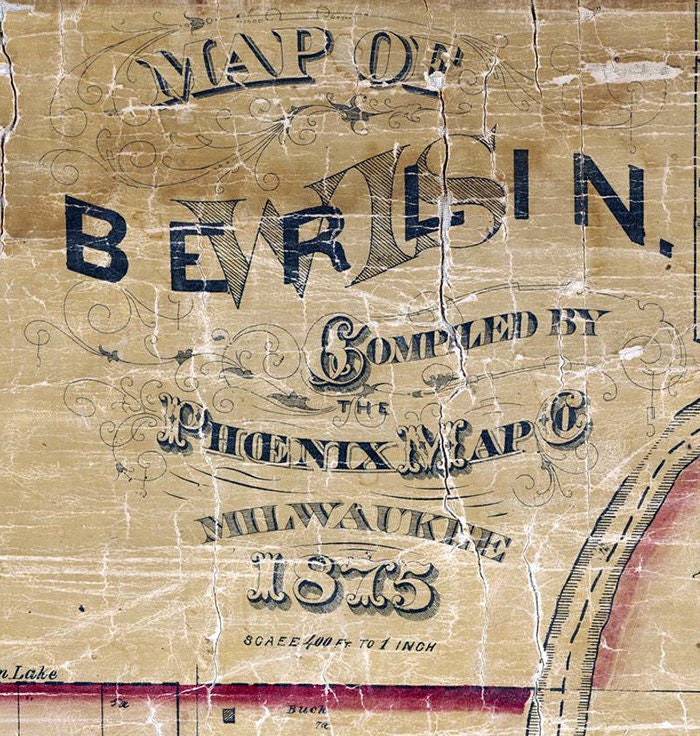 MAP OF
BERLIN.
WIS
COMPILED BY
THE
PHŒNIX MAP Co
MILWAUKEE
1875
SCALE 400 FT TO 1 INCH
n Lake
5a
Buck
7a